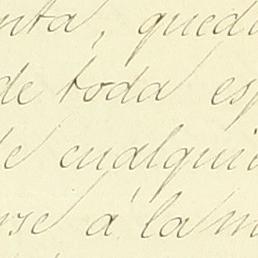 nta, qued
de toda esp
de cualqui
rse á la m